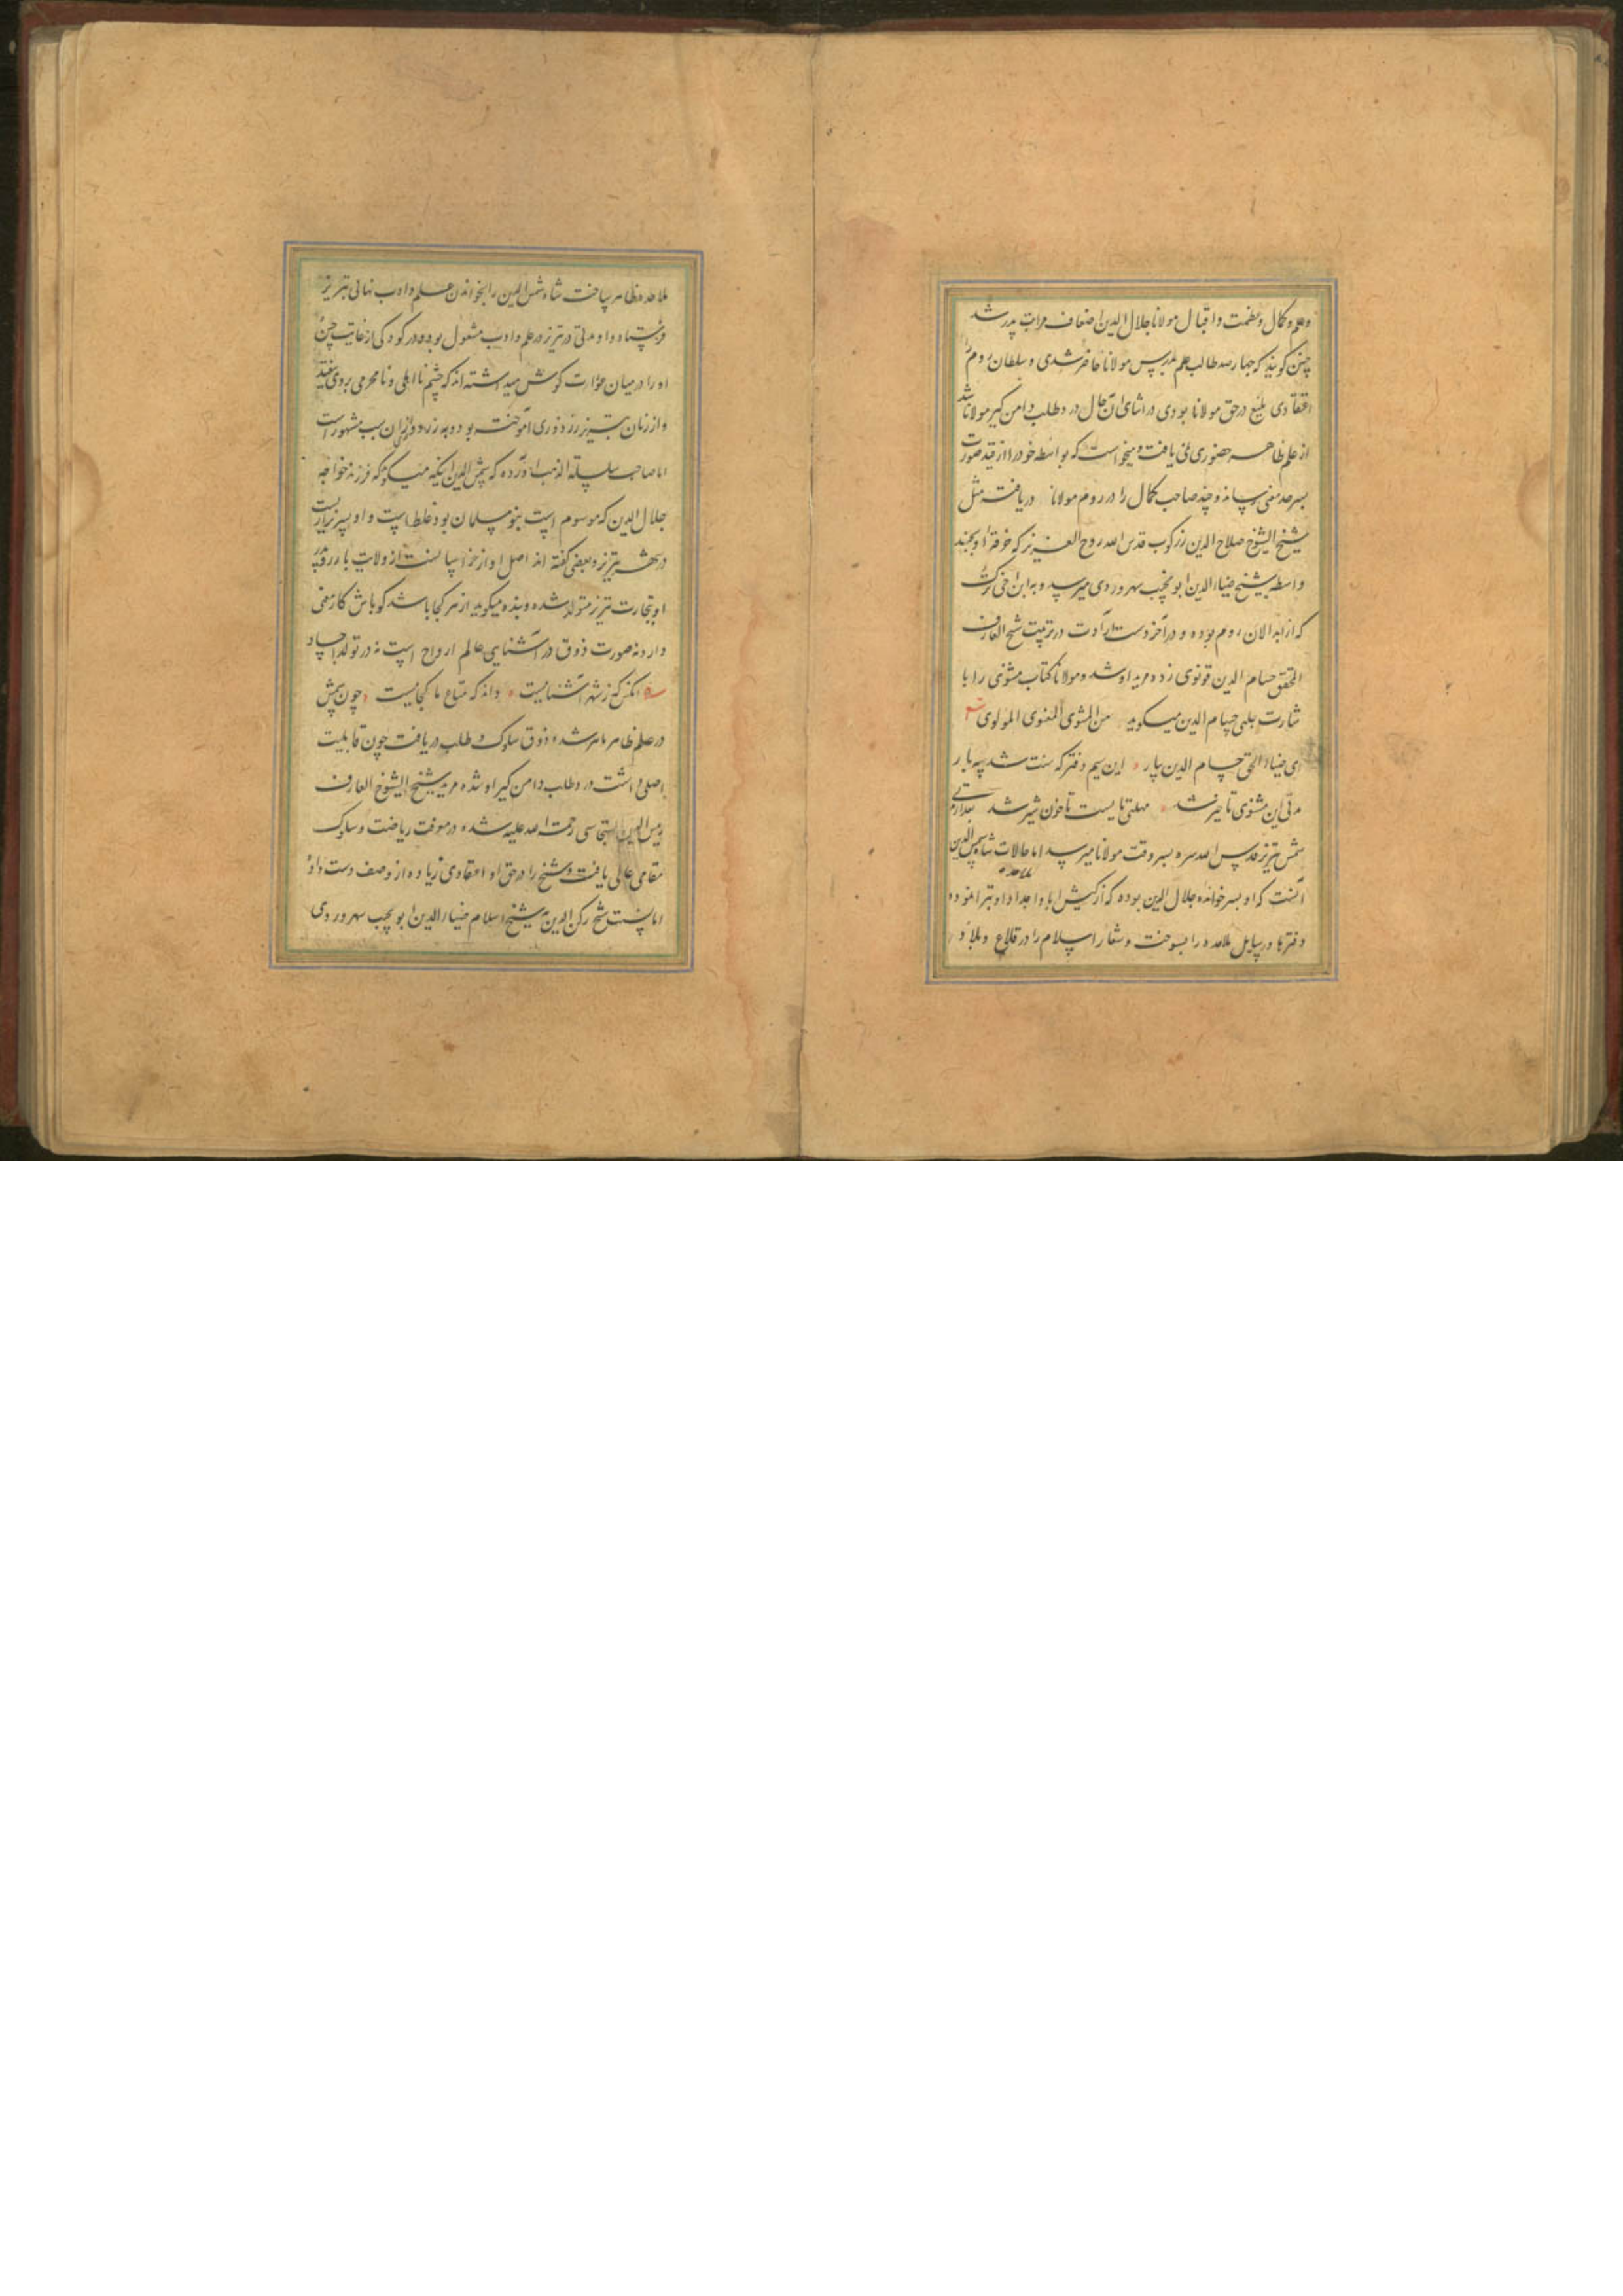 و علم و کمال و عظمت و اقبال مولانا جلال الدین اضعاف مراتب پدر شد
چنین گویند که چهار صد طالب علم بدرس مولانا حاضر شدی و سلطان روم را
اعتقادی بلیغ در حق مولانا بودی در اثنای آن حال درد طلب دامن گیر مولانا شد
از علم ظاهر حضوری نمی یافت و میخواست که بواسطه خود را از قید صورت
بسرحد معنی رساند و چند صاحب کمال را در روم مولانا دریافت مثل
شیخ الشیوخ صلاح الدین زرکوب قدس الله روح العزیز که خرقه او بچند
واسطه بشیخ ضیاء الدین ابو نجیب سهروردی میرسد و به ابن اخی ترک
که از ابدالان روم بوده و در آخر دست ارادت در تربیت شیخ العارف
المحقق حسام الدین قونوی زده مرید او شد و مولانا کتاب مثنوی را با
شارت چلبی حسام الدین میگوید من المثنوی المعنوی المولوی
ای ضیاء الحق حسام الدین بیار این سیم دفتر که سنت شد سه بار
مدتی این مثنوی تاخیر شد مهلتی بایست تا خون شیر شد بعد از مدتی
شمس تبریز قدس الله سره بسر وقت مولانا میرسد اما حالات شاه شمس الدین
آنست که او بسر خوانده جلال الدین بوده که از کیش ابا و اجداد او تبرا نموده
دفترها و رسایل ملاحده را بسوخت و شعار اسلام را در قلاع و بلاد
ملاحده ظاهر ساخت شاه شمس الدین را بخواندن علم و ادب نهانی تبریز
فرستاد و او مدتی در تبریز در علم و ادب مشغول بوده در کودکی از غایت حسن
او را در میان عورات گوش میداشته اند که چشم نا اهلی و نامحرمی بروی نیفتد
و از زنان تبریز زردوزی آموخته بود و به زردوز از آن سبب مشهور است
اما صاحب سلسلة الذهب آورده که شمس الدین اینکه میگویند که فرزند خواجه
جلال الدین که موسوم است بنو مسلمان بود غلط است و او پسر بزازیست
در شهر تبریز و بعضی گفته اند اصل او از خراسانست از ولایت بازر و پدر
او بتجارت تبریز متولد شده و بنده میگوید از هر کجا باشد گو باش کار معنی
دارد نه صورت ذوق در آشنایی عالم ارواح است نه در تولد اجساد
آنکس که ز شهر آشناییست داند که متاع ما کجاییست چون شمس
در علم ظاهر ماهر شد ذوق سلوک و طلب دریافت چون قابلیت
اصلی داشت درد طلب دامن گیر او شده مرید شیخ الشیوخ العارف
رکن الدین السنجاسی رحمت الله علیه شد در معرفت ریاضت و سلوک
مقامی عالی یافت و شیخ را در حق او اعتقادی زیاده از وصف دست داد
اما نسبت شیخ رکن الدین بشیخ اسلام ضیاء الدین ابو نجیب سهروردی